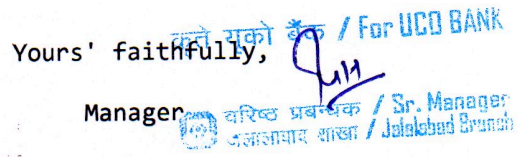 कृते यूको बैंक / For UCO BANK
Yours' faithfully,
Manager
वरिष्ठ प्रबन्धक / Sr. Manager
जलालाबाद शाखा / Jalalabad Branch